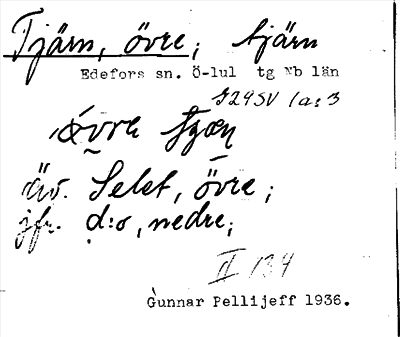 Tjärn, övre; tjärn
Edefors sn. Ö-lul tg Nb län
J29SV 1a:3
övrə
äv. Selet, övre;
jfr. d:o, nedre;
II 134
Gunnar Pellijeff 1936.